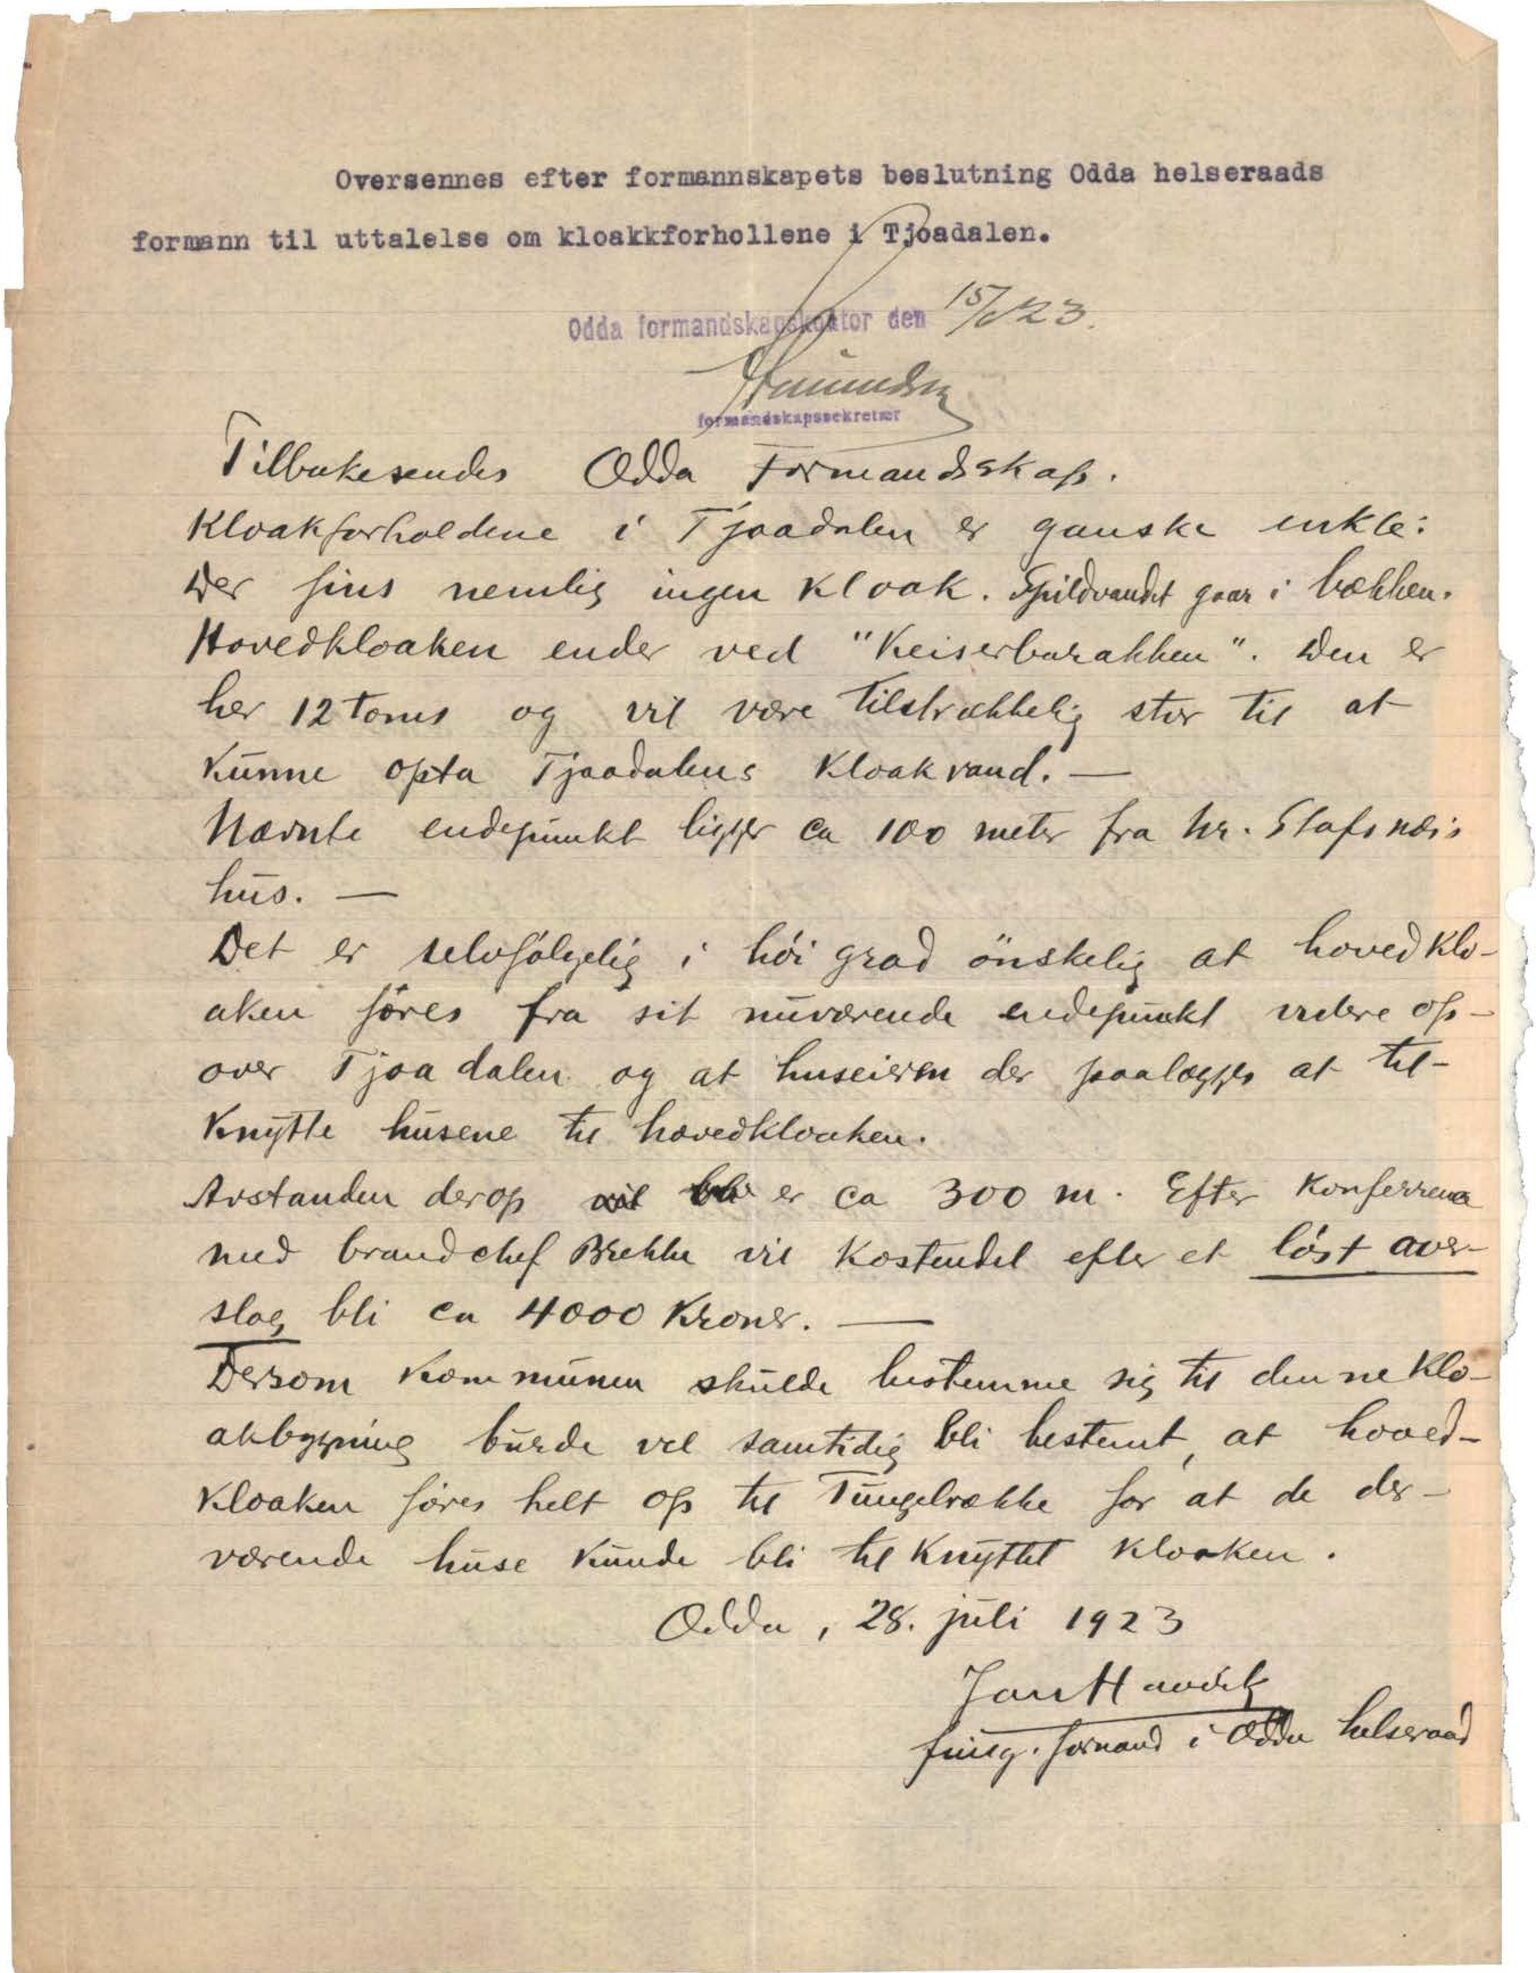 Oversennes efter formannskapets beslutning Odda helseraads
formann til uttalelse om kloakkforhollene i Tjoadalen.
Odda formandskapskontor den 15/6 23.
formandskapssekretær
Tilbakesendes Odda Formandskap.
Kloakforholdene i Tjoadalen er ganske enkle:
Der fins nemlig ingen kloak. Spildvandet gaar i bækken.
Hovedkloaken ender ved "Keiserbarakken". Den er
her 12 toms og vil være tilstrækkelig stor til at
kunne opta Tjoadalens kloakvand. —
Nævnte endepunkt ligger ca 100 meter fra hr. Stafsnæs
hus. —
Det er selvfölgelig i höi grad önskelig at hovedklo-
aken föres fra sit nuværende endepunkt videre op-
over Tjoadalen og at huseieren der paalægges at til-
knytte husene til hovedkloaken.
Avstanden derop vil bli er ca 300 m. Efter konferrence
med brandchef Brekke vil kostendet efter et löst over-
slag bli ca 4000 kroner. —
Dersom kommunen skulde bestemme sig til denne klo-
akbygging burde vel samtidig bli bestemt, at hoved-
kloaken föres helt op til Tungelrække for at de der-
værende huse kunde bli tilknyttet kloaken.
Odda, 28. juli 1923
fung. formand i Odda helseraad